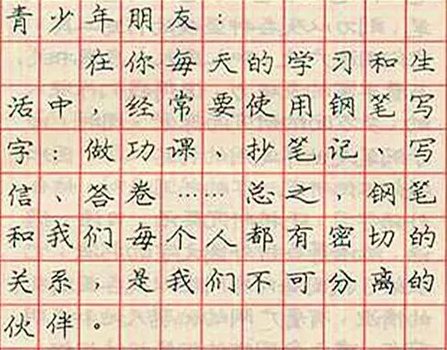 青少年朋友：
在你每天的学习和生
活中，经常要使用钢笔写
字：做功课、抄笔记、写
信、答卷……总之，钢笔
和我们每个人都有密切的
关系，是我们不可分离的
伙伴。